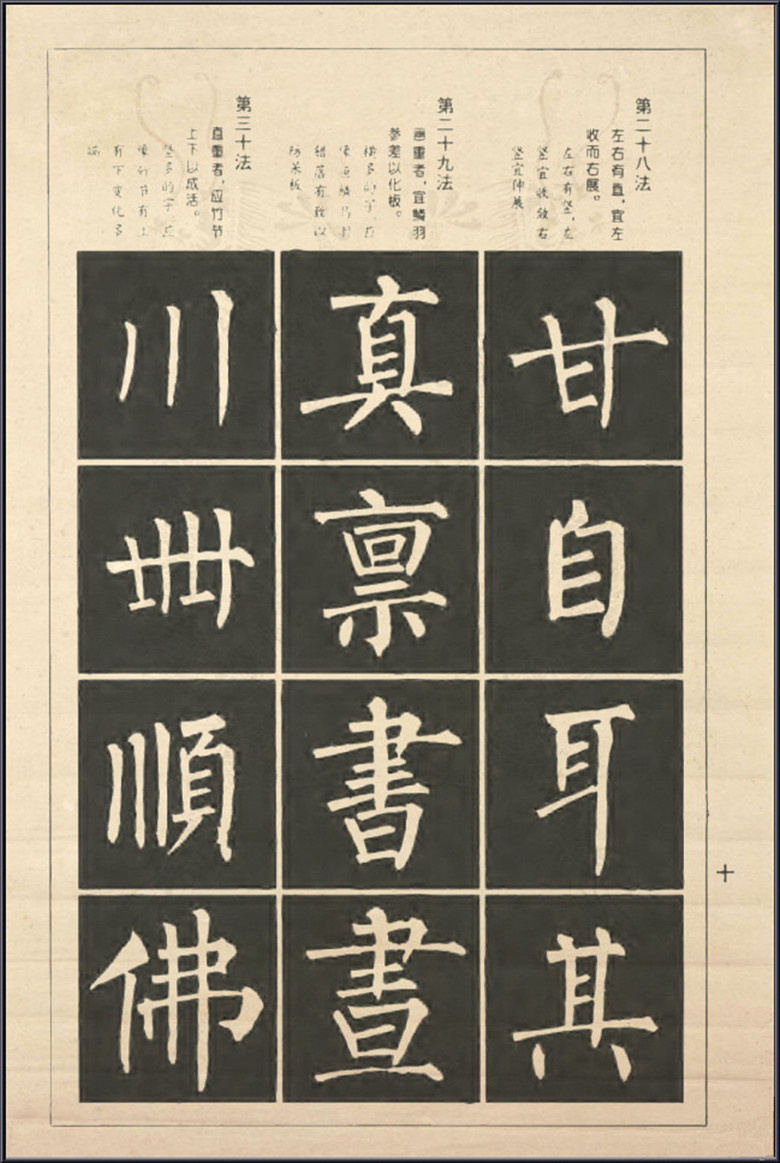 第二十八法
左右有直，宜左
收而右展。
左右有竖，左
竖宜收敛右
竖宜伸展
甘自耳其
第二十九法
画重者，宜鳞羽
参差以化板。
横多的字，应
像鱼鳞鸟羽
错落有致以
防呆板
真禀書晝
第三十法
直重者，应竹节
上下以成活。
竖多的字，应
像竹节有上
有下变化多
端
川冊順佛
十